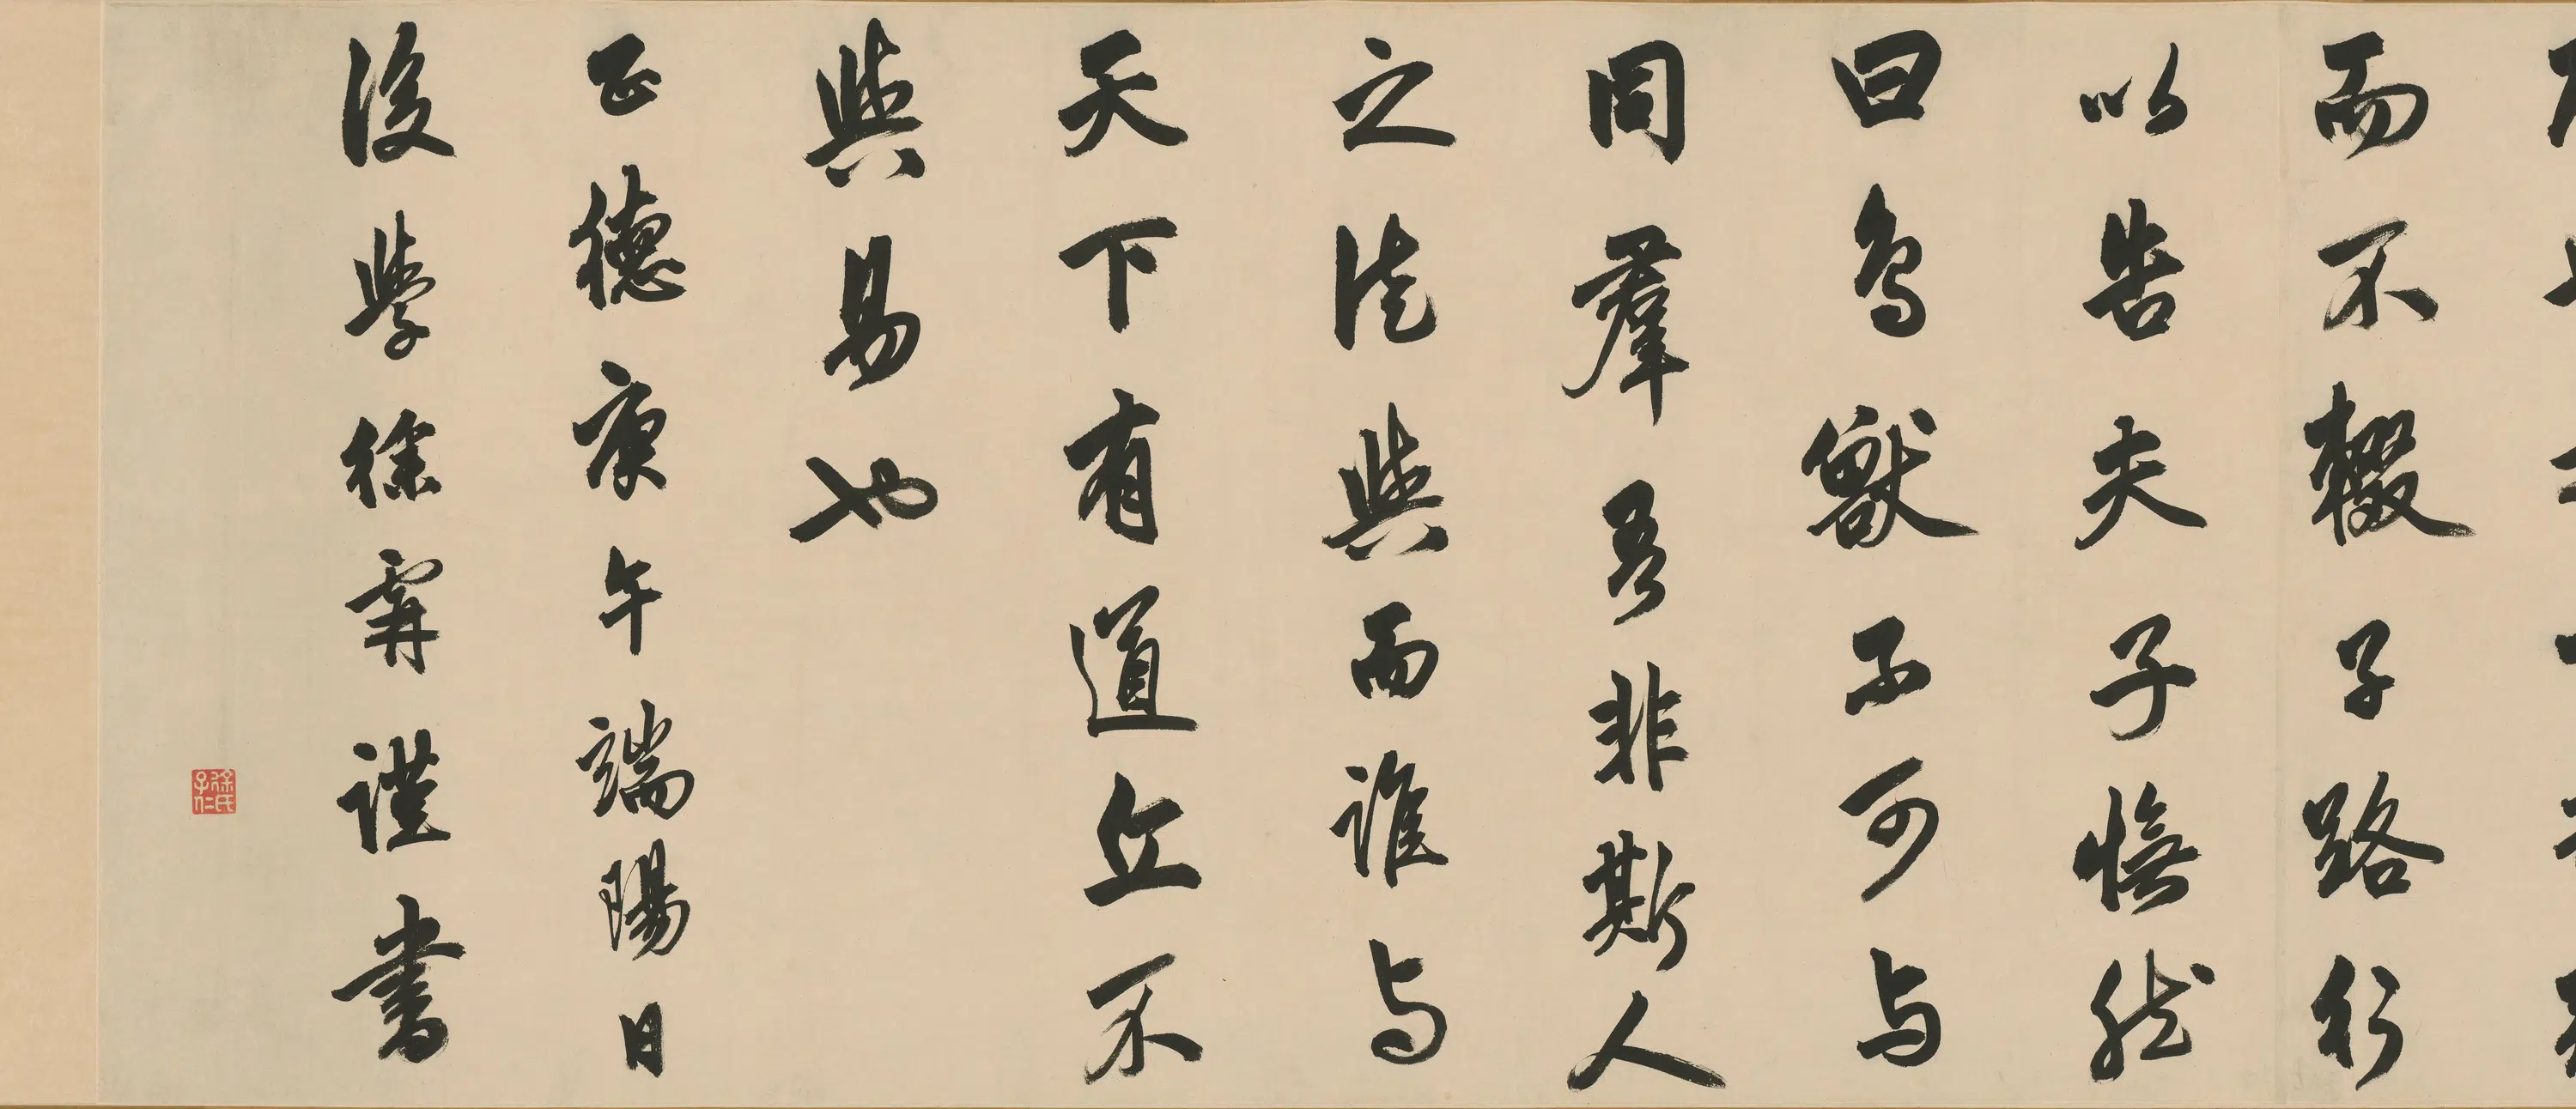 而不輟子路行
以告夫子憮然
曰鳥獸不可与
同羣吾非斯人
之徒與而誰与
天下有道丘不
與易也
正德庚午端陽日
後學徐霖謹書
徐氏子仁